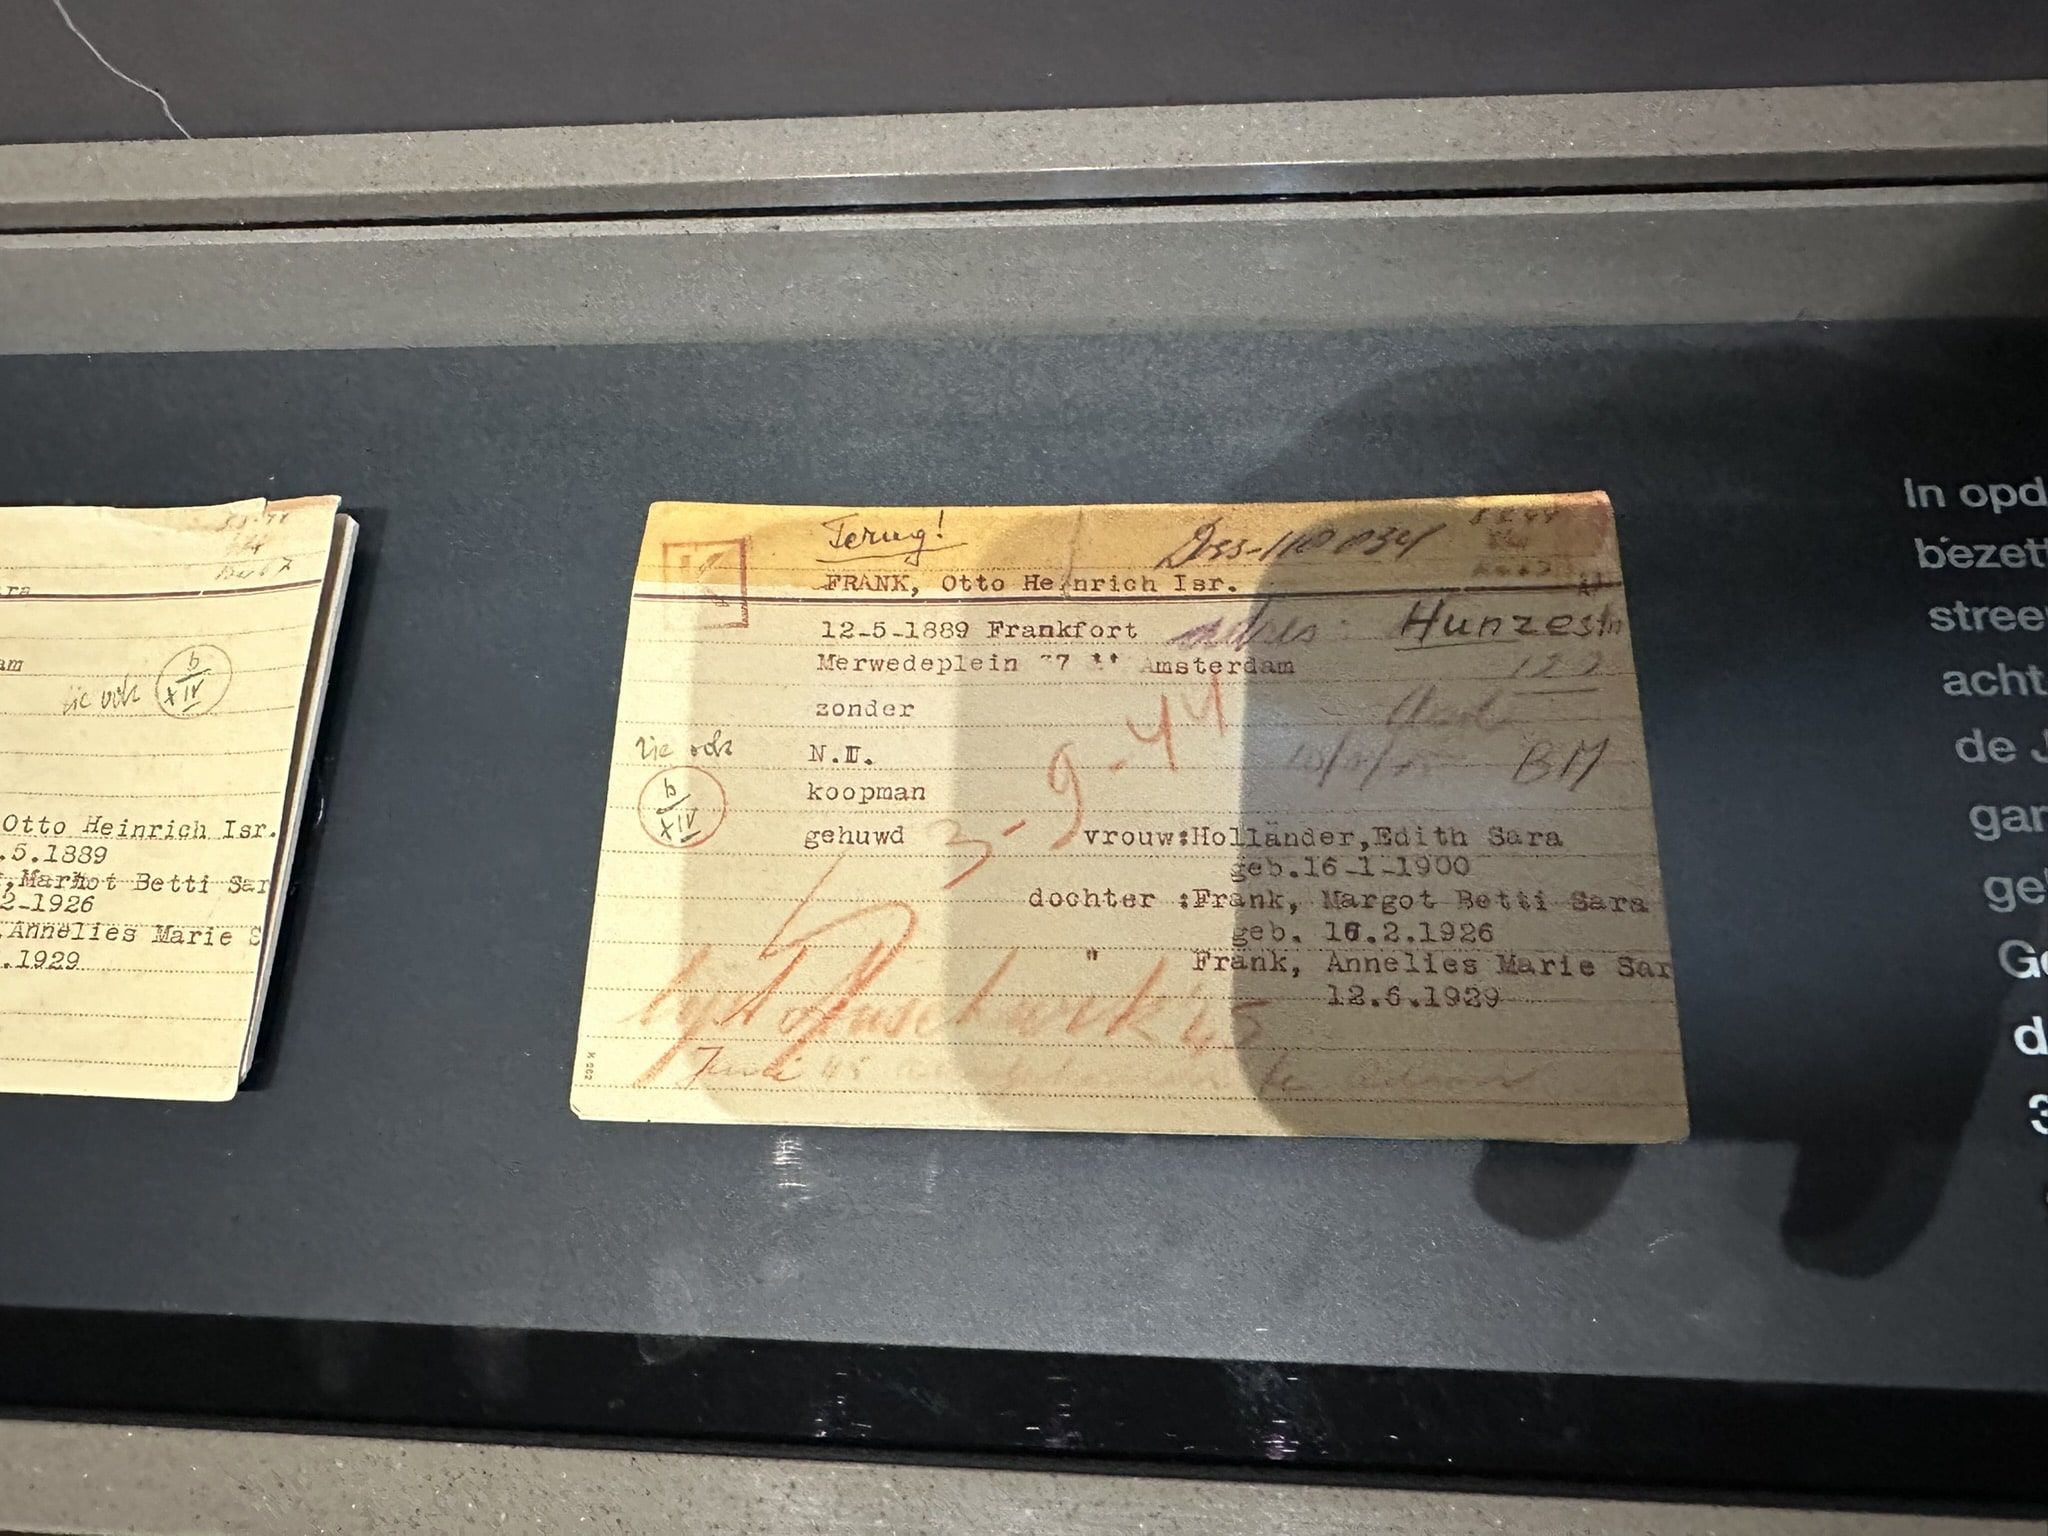 ra
am
zie ook
b
XIV
Otto Heinrich Isr.
.5.1889
,Margot Betti Sar
2-1926
,Annelies Marie S
.1929
Terug!
FRANK, Otto Heinrich Isr.
12-5-1889 Frankfort
adres: Hunzestr
Merwedeplein 37 Amsterdam
122
zonder
zie ook
N.I.
BM
b
XIV
koopman
3-9-44
gehuwd
vrouw:Holländer,Edith Sara
geb.16-1-1900
dochter :Frank, Margot Betti Sara
geb. 16.2.1926
" Frank, Annelies Marie Sar
12.6.1929
lijst Auschwitz 45
Juni 45
K 262
In opd
bezett
stree
acht
de J
gan
ge
Ge
d
3